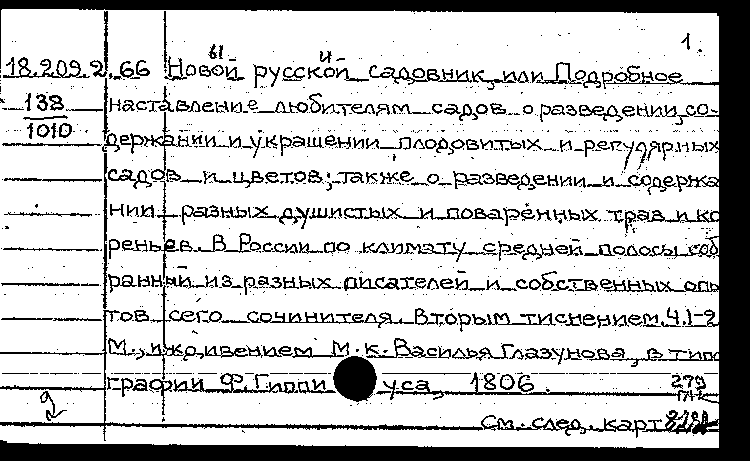 1.
18.209.2.66 Новый русский садовник, или Подробное
138
1010
наставление любителям садов о разведении, со-
держании и украшении плодовитых и регулярных
садов и цветов; также о разведении и содержа
нии разных душистых и поваренных трав и ко
реньев. В России по климату средней полосы соб
ранный из разных писателей и собственных опы
тов сего сочинителя. Вторым тиснением. Ч.1-2
М., иждивением М.К. Василья Глазунова, в типо
графии Ф. Гиппиуса, 1806.
279
См. след. карт